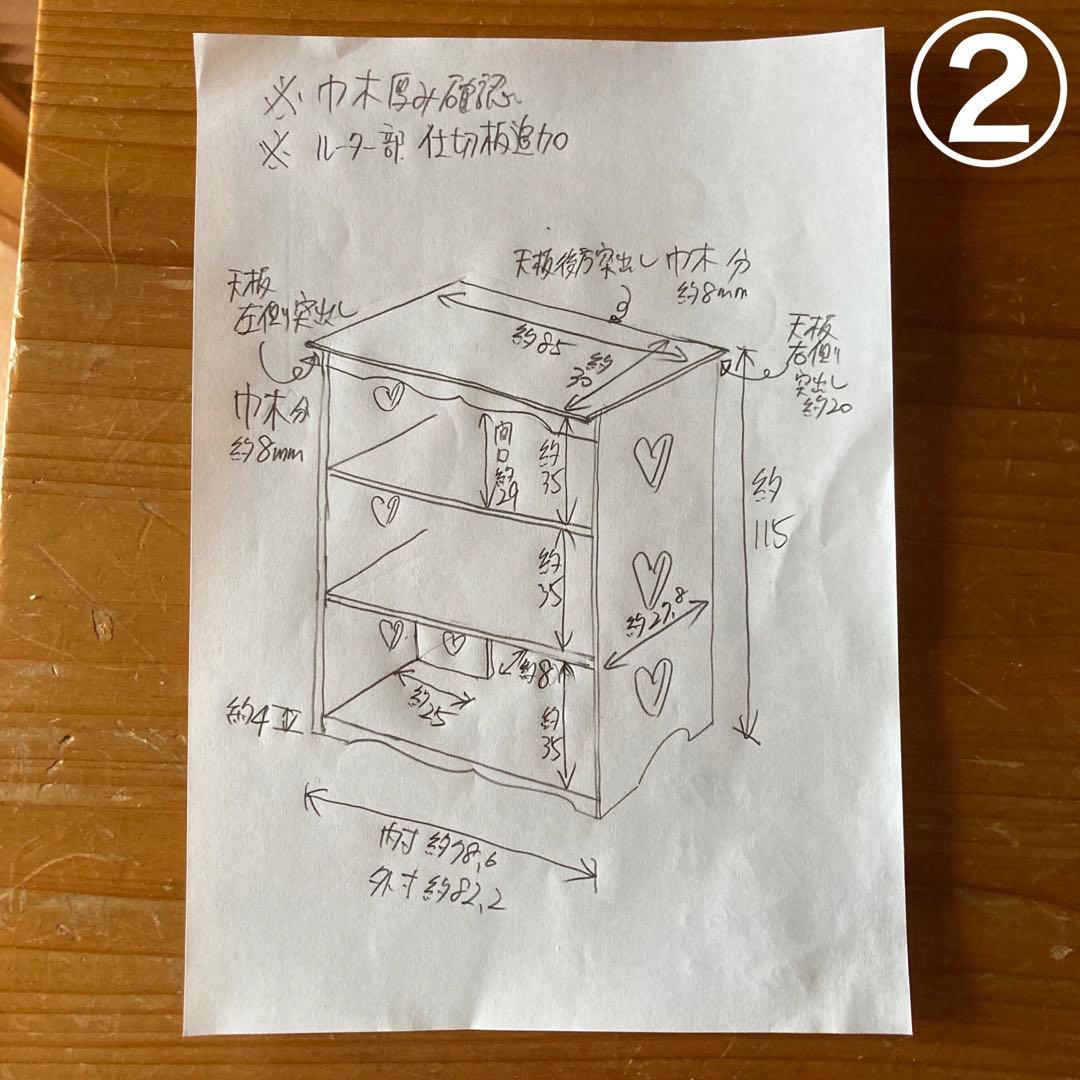 ②
※ 巾木厚み確認
※ ルーター部 仕切板追加
天板後方突出し 巾木分
約8mm
天板
左側突出し
巾木分
約8mm
天板
右側
突出し
約20
約85
約
30
間口約29
約35
約
115
約35
約27.8
約8
約25
約35
約4
内寸 約78.6
外寸 約82.2